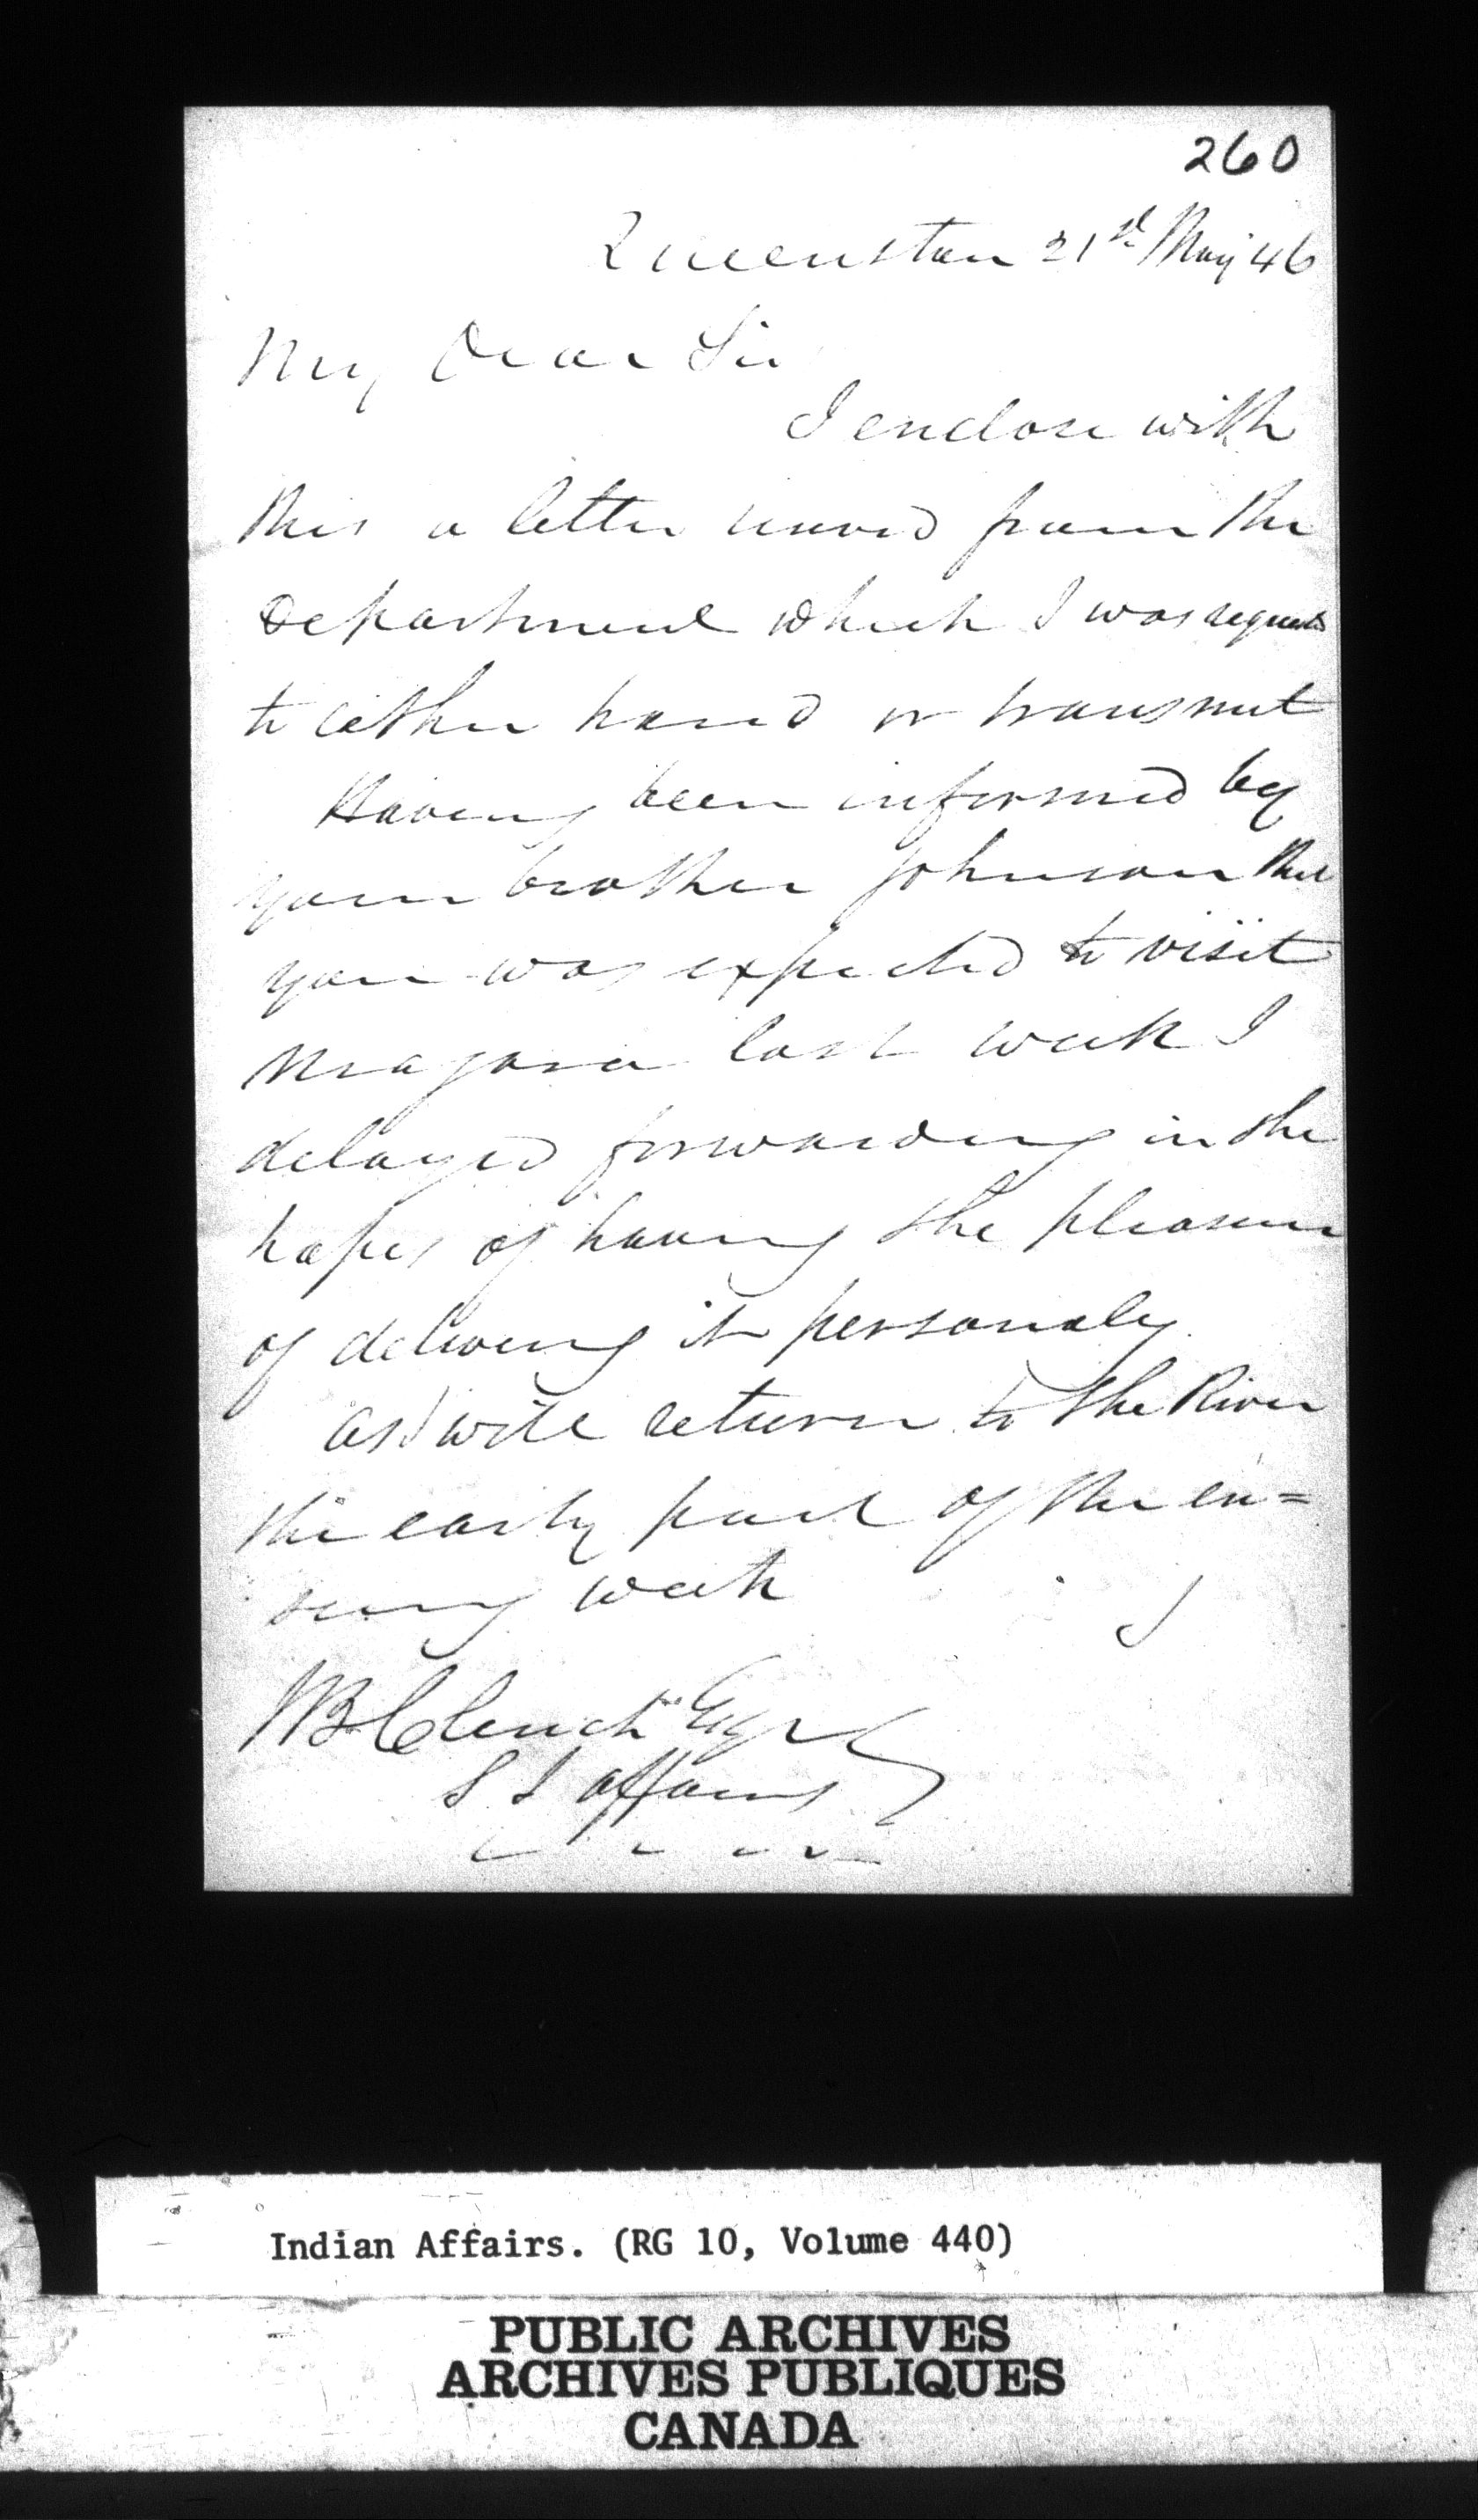 260
Queenston 21st May 46
My Dear Sir
I enclose with
this a letter received from the
Department which I was requestd
to either hand or transmit
Having been informed by
your brother Johnson that
you was expected to visit
Niagara last week I
delayed forwarding in the
hopes of having the pleasure
of delivering it personaly
as I will return to the River
the early part of the en=
suing week I
JB Clench Esqr
S I affairs
Indian Affairs. (RG 10, Volume 440)
PUBLIC ARCHIVES
ARCHIVES PUBLIQUES
CANADA